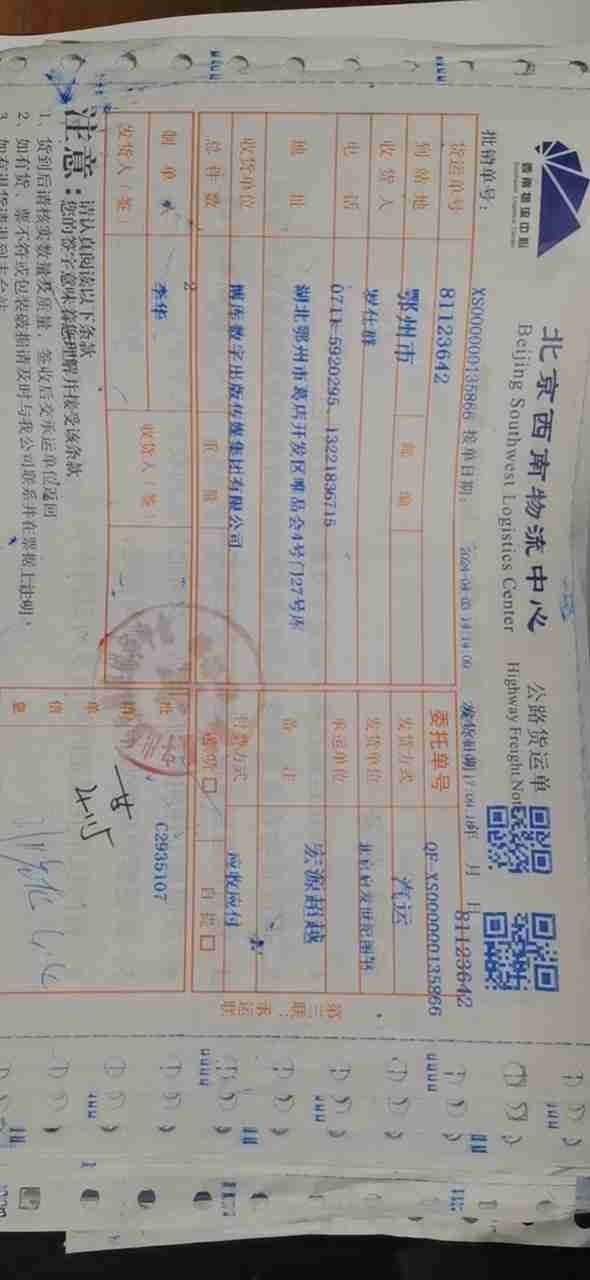 西南物流中心
Southwest Logistics Center
北京西南物流中心
Beijing Southwest Logistics Center
公路货运单
Highway Freight Not
批销单号：
XS000000135866
接单日期：
81123642
货运单号
81123642
委托单号
QF-XS000000135866
到站地
鄂州市
邮编
发货方式
汽运
收货人
罗仕群
发货单位
电话
0711-5920295、13221836715
承运单位
地址
湖北鄂州市葛店开发区唯品会4号门27号库
备注
宏源超越
收货单位
博库数字出版传媒集团有限公司
付款方式
应收应付
总件数
2
重量
自提 □
制单人
李华
收货人（签）
发货人（签）
批销单信息
C2935107
第三联：承运联
注意：
请认真阅读以下条款
您的签字意味着您理解并接受该条款
1、货到后请核实数量及质量，签收后交承运单位返回
2、如有货、票不符或包装破损请及时与我公司联系并在票据上注明。